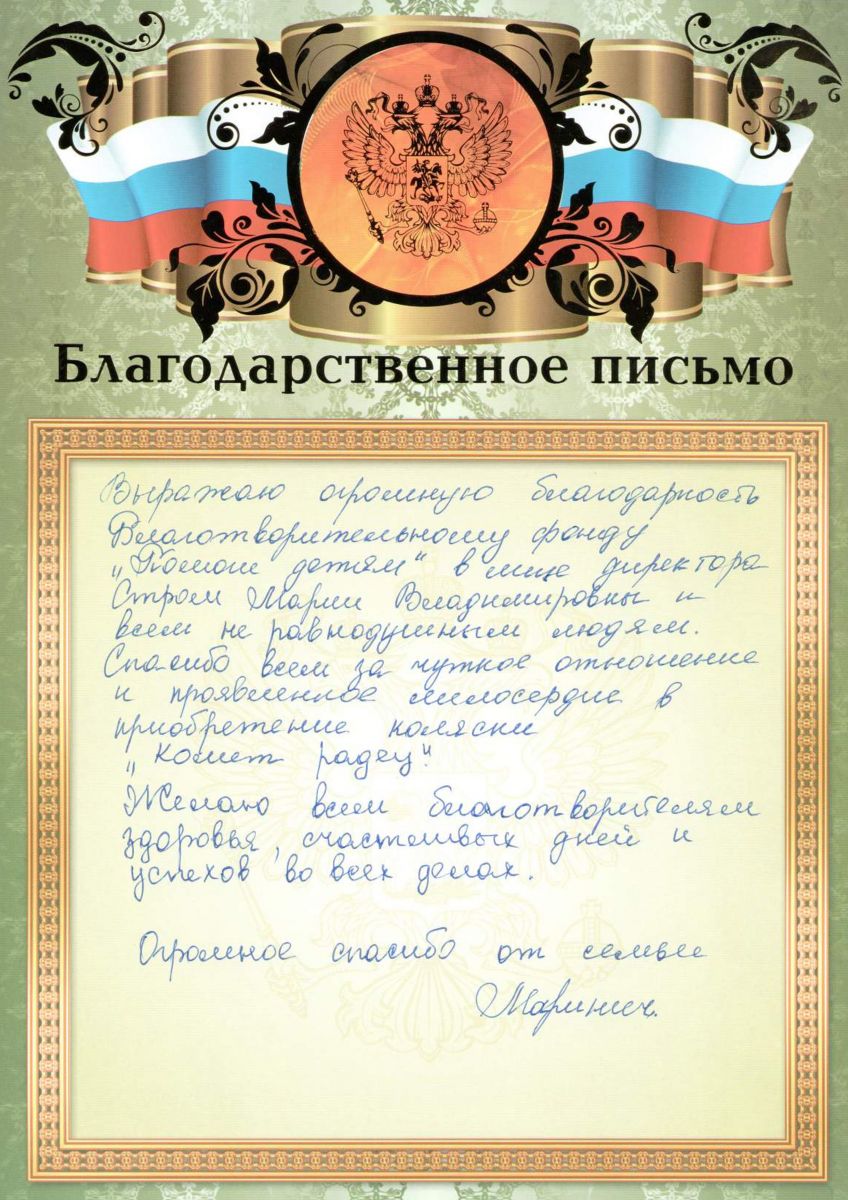 Благодарственное письмо
Выражаю огромную благодарность
Благотворительному фонду
„Помощ детям" в лице директора
Стром Марии Владимировны и
всем не равнодушным людям.
Спасибо всем за чуткое отношение
и проявленное милосердие в
приобретение коляски
„Комет радец".
Желаю всем благотворителям
здоровья, счастливых дней и
успехов во всех делах.
Огромное спасибо от семьи
Маринич.